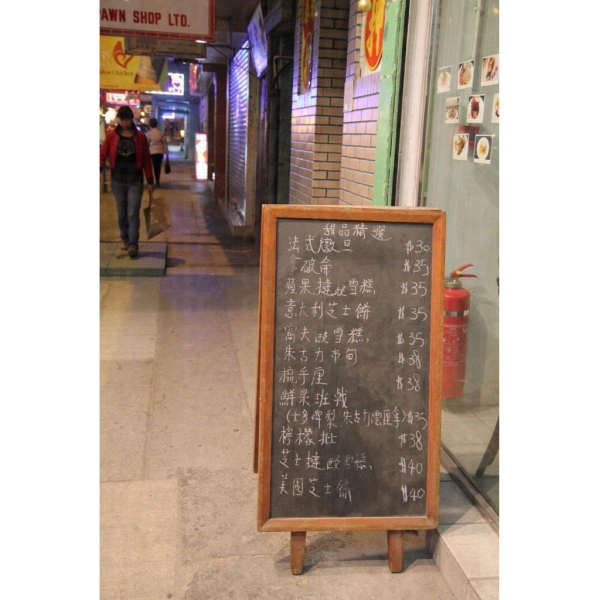 AWN SHOP LTD.
Chicken
甜品精選
法式燉旦 $30
令破侖 $35
蘋果撻跟雪糕 $35
意大利芝士餅 $35
窩夫跟雪糕 $35
朱古力布甸 $38
梳乎厘 $38
鮮果班戟
(士多啤梨 朱古力雲尼拿) $35
檸檬批 $38
芝士撻跟雪糕 $40
美国芝士餅 $40